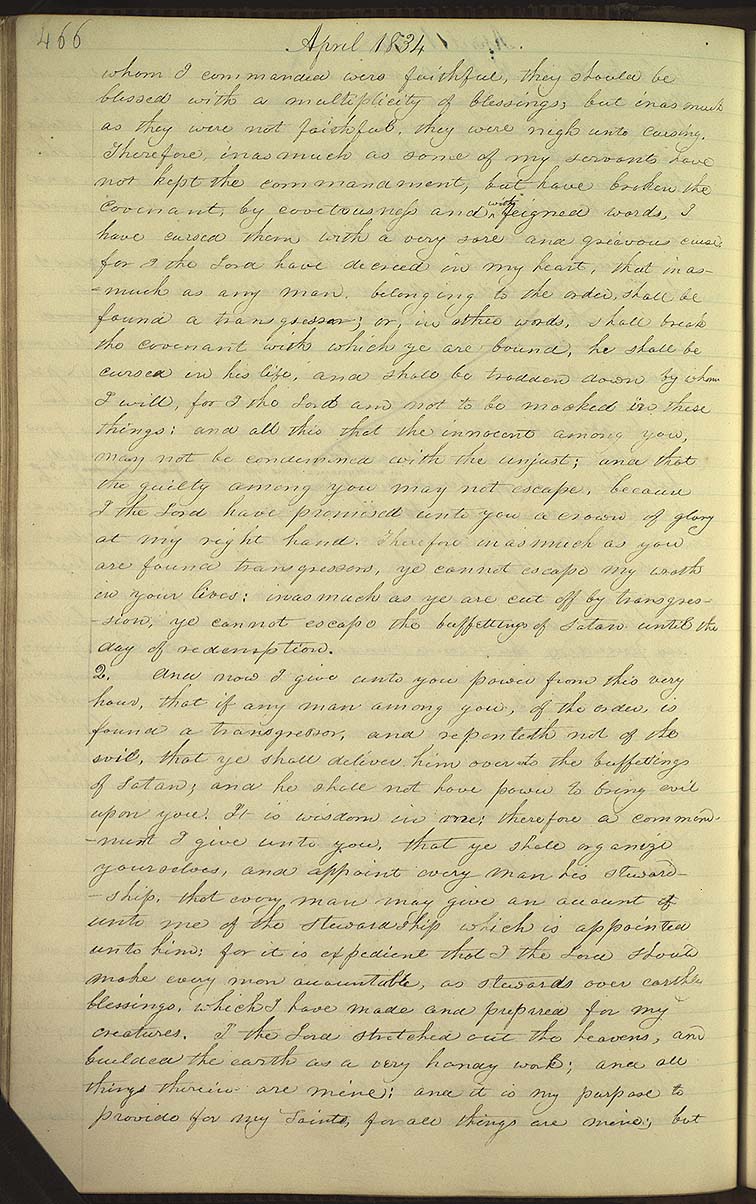 466
April 1834
whom I commanded were faithful, they should be
blessed with a multiplicity of blessings; but inasmuch
as they were not faithful, they were nigh unto cursing.
Therefore, inasmuch as some of my servants have
not kept the commandment, but have broken the
covenant, by covetousness and with feigned words, I
have cursed them with a very sore and grievous curse:
for I the Lord have decreed in my heart, that inas-
-much as any man belonging to the order, shall be
found a transgressor; or, in other words, shall break
the covenant with which ye are bound, he shall be
cursed in his life, and shall be trodden down by whom
I will, for I the Lord am not to be mocked in these
things: and all this that the innocent among you,
may not be condemned with the unjust; and that
the guilty among you may not escape, because
I the Lord have promised unto you a crown of glory
at my right hand. Therefore inasmuch as you
are found transgressors, ye cannot escape my wrath
in your lives: inasmuch as ye are cut off by transgres-
-sion, ye cannot escape the buffettings of Satan until the
day of redemption.
2. And now I give unto you power from this very
hour, that if any man among you, of the order, is
found a transgressor, and repenteth not of the
evil, that ye shall deliver him over to the buffettings
of Satan; and he shall not have power to bring evil
upon you. It is wisdom in me; therefore a command-
-ment I give unto you, that ye shall organize
yourselves, and appoint every man his steward-
-ship, that every man may give an account of
unto me of the stewardship which is appointed
unto him: for it is expedient that I the Lord should
make every man accountable, as stewards over earthly
blessings, which I have made and prepared for my
creatures. I the Lord stretched out the heavens, and
builded the earth as a very handy work; and all
things therein are mine; and it is my purpose to
provide for my Saints, for all things are mine; but